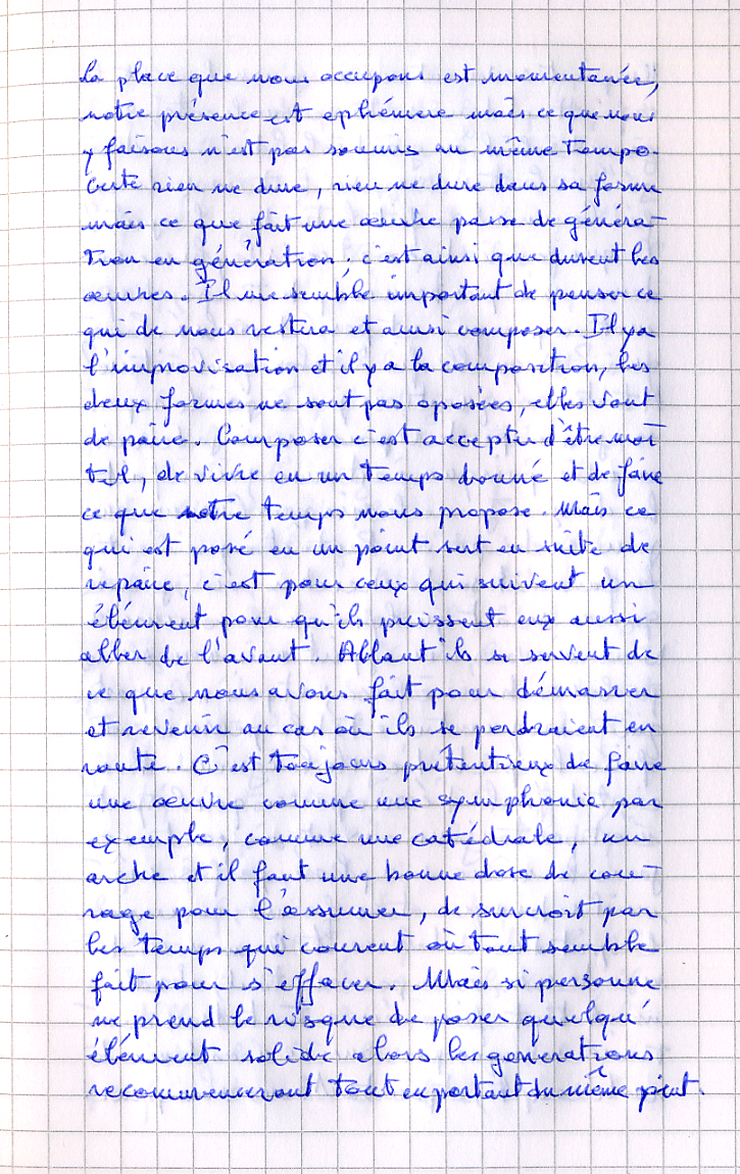 La place que nous occupons est momentanée,
notre présence est ephémere mais ce que nous
y faisons n'est pas soumis au même Tempo.
Certe rien ne dure, rien ne dure dans sa forme
mais ce que fait une œuvre passe de généra-
tion en génération ; c'est ainsi que durent les
œuvres. Il me semble important de penser ce
qui de nous restera et ainsi composer. Il y a
l'improvisation et il y a la composition, les
deux formes ne sont pas oposées, elles vont
de paire. Composer c'est accepter d'être mor-
tel, de vivre en un temps donné et de faire
ce que notre temps nous propose. Mais ce
qui est posé en un point sert en suite de
repaire, c'est pour ceux qui suivent un
élément pour qu'ils puissent eux aussi
aller de l'avant. Allant ils se servent de
ce que nous avons fait pour démarrer
et revenir au cas où ils se perdraient en
route. C'est toujours prétentieux de faire
une œuvre comme une symphonie par
exemple, comme une catédrale, un
arche et il faut une bonne dose de cou-
rage pour l'assumer, de surcroit par
les temps qui courent où tout semble
fait pour s'effacer. Mais si personne
ne prend le risque de poser quelqu'
élément solide alors les generations
recommenceront tout en partant du même point.